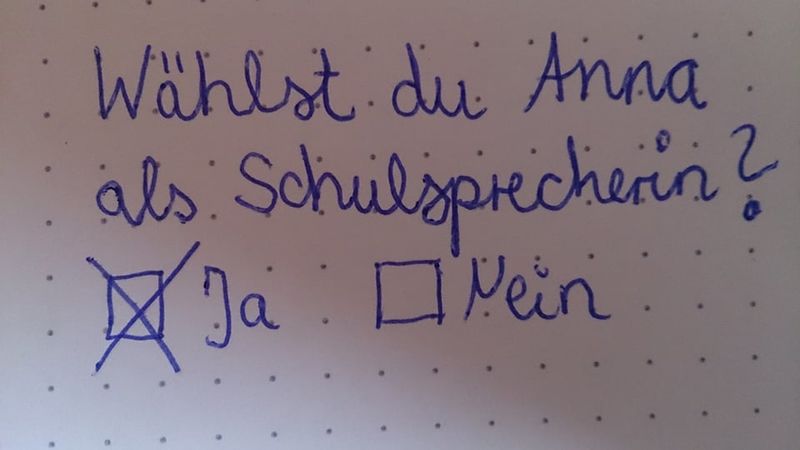 Wählst du Anna
als Schulsprecherin?
☒ Ja ☐ Nein